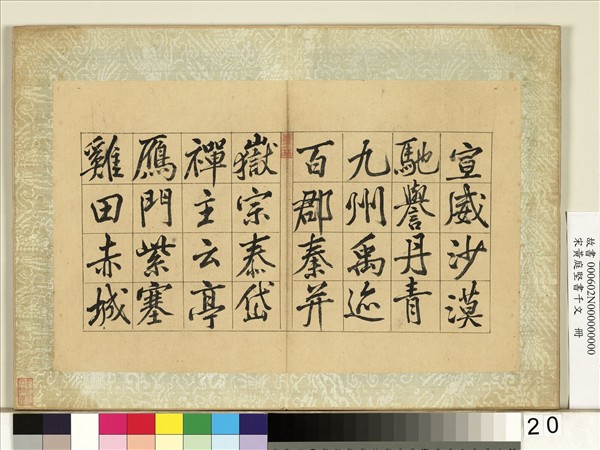 宣威沙漠
馳譽丹青
九州禹迹
百郡秦并
嶽宗泰岱
禪主云亭
鴈門紫塞
雞田赤城
故書 000602N000000000
宋黃庭堅書千文 冊
20